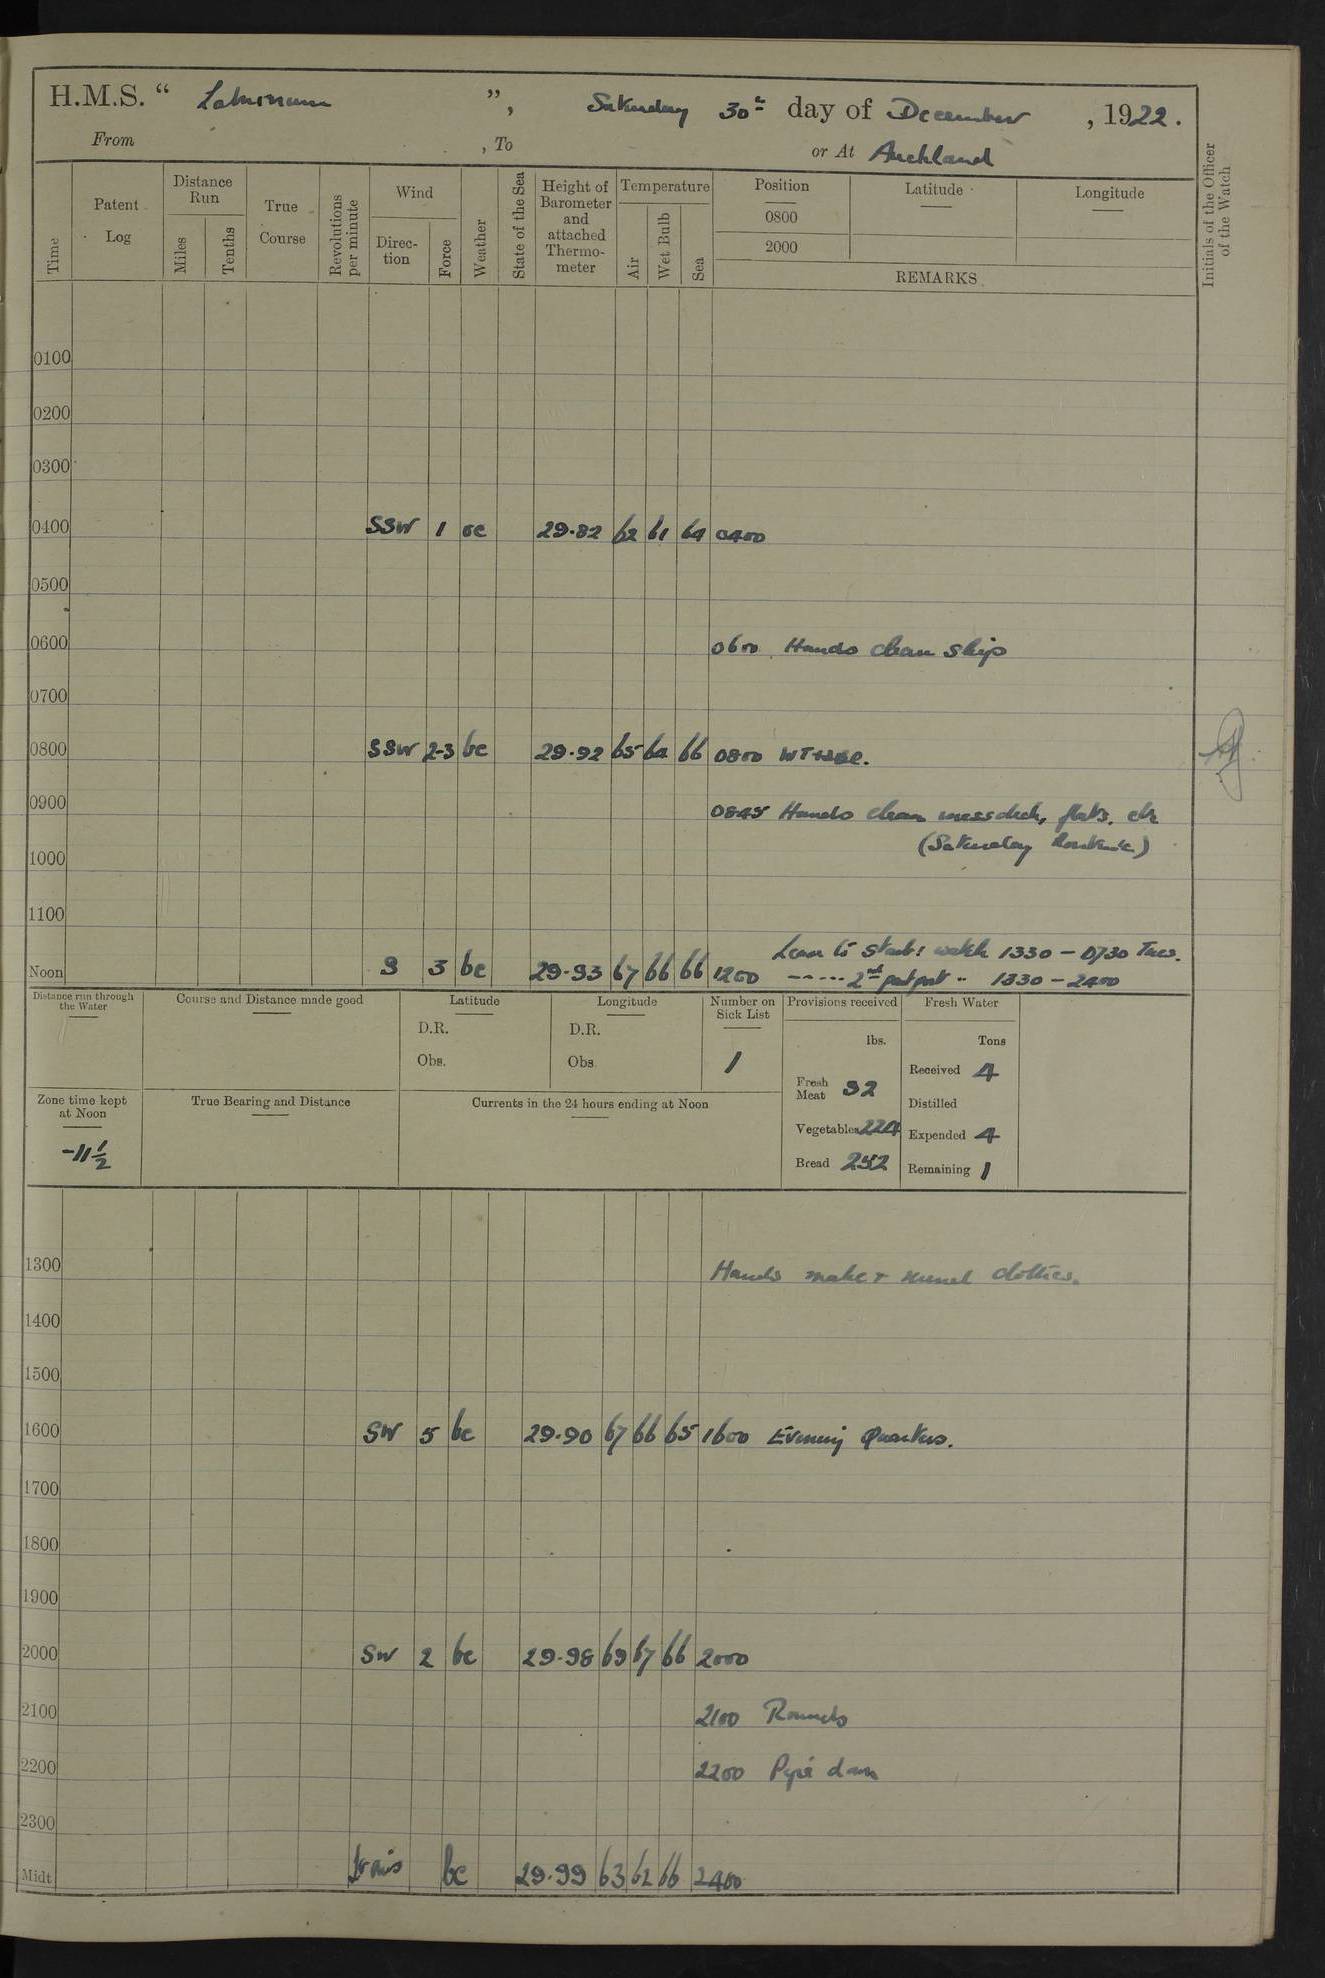 H.M.S. “ Laburnum ”, Saturday 30th day of December, 1922.
From , To or At Auckland
Time
Patent Log
Distance Run
Miles
Tenths
True Course
Revolutions per minute
Wind
Direc-tion
Force
Weather
State of the Sea
Height of Barometer and attached Thermo-meter
Temperature
Air
Wet Bulb
Sea
Position
0800
2000
Latitude
Longitude
REMARKS
Initials of the Officer of the Watch
0100
0200
0300
0400 SSW 1 oc 29.82 62 61 64 0400
0500
0600 0600 Hands clean ship
0700
0800 SSW 2-3 bc 29.92 65 62 66 0800
0900 0845 Hands clean messdeck, flats. etc
(Saturday Routine)
1000
1100
Leave to Starbd watch 1330 – 0730 Tues.
Noon S 3 bc 29.93 67 66 66 1200 2nd part port 1330 – 2400
Distance run through the Water
Course and Distance made good
Latitude
D.R.
Obs.
Longitude
D.R.
Obs.
Number on Sick List
1
Provisions received
lbs.
Fresh Meat 92
Vegetables 224
Bread 252
Fresh Water
Tons
Received 4
Distilled
Expended 4
Remaining 1
Zone time kept at Noon
-11 1/2
True Bearing and Distance
Currents in the 24 hours ending at Noon
1300 Hands make & mend clothes.
1400
1500
1600 SW 5 bc 29.90 67 66 65 1600 Evening Quarters.
1700
1800
1900
2000 SW 2 bc 29.98 69 67 66 2000
2100 2100 Rounds
2200 2200 Pipe down
2300
Midt bc 29.99 63 62 66 2400